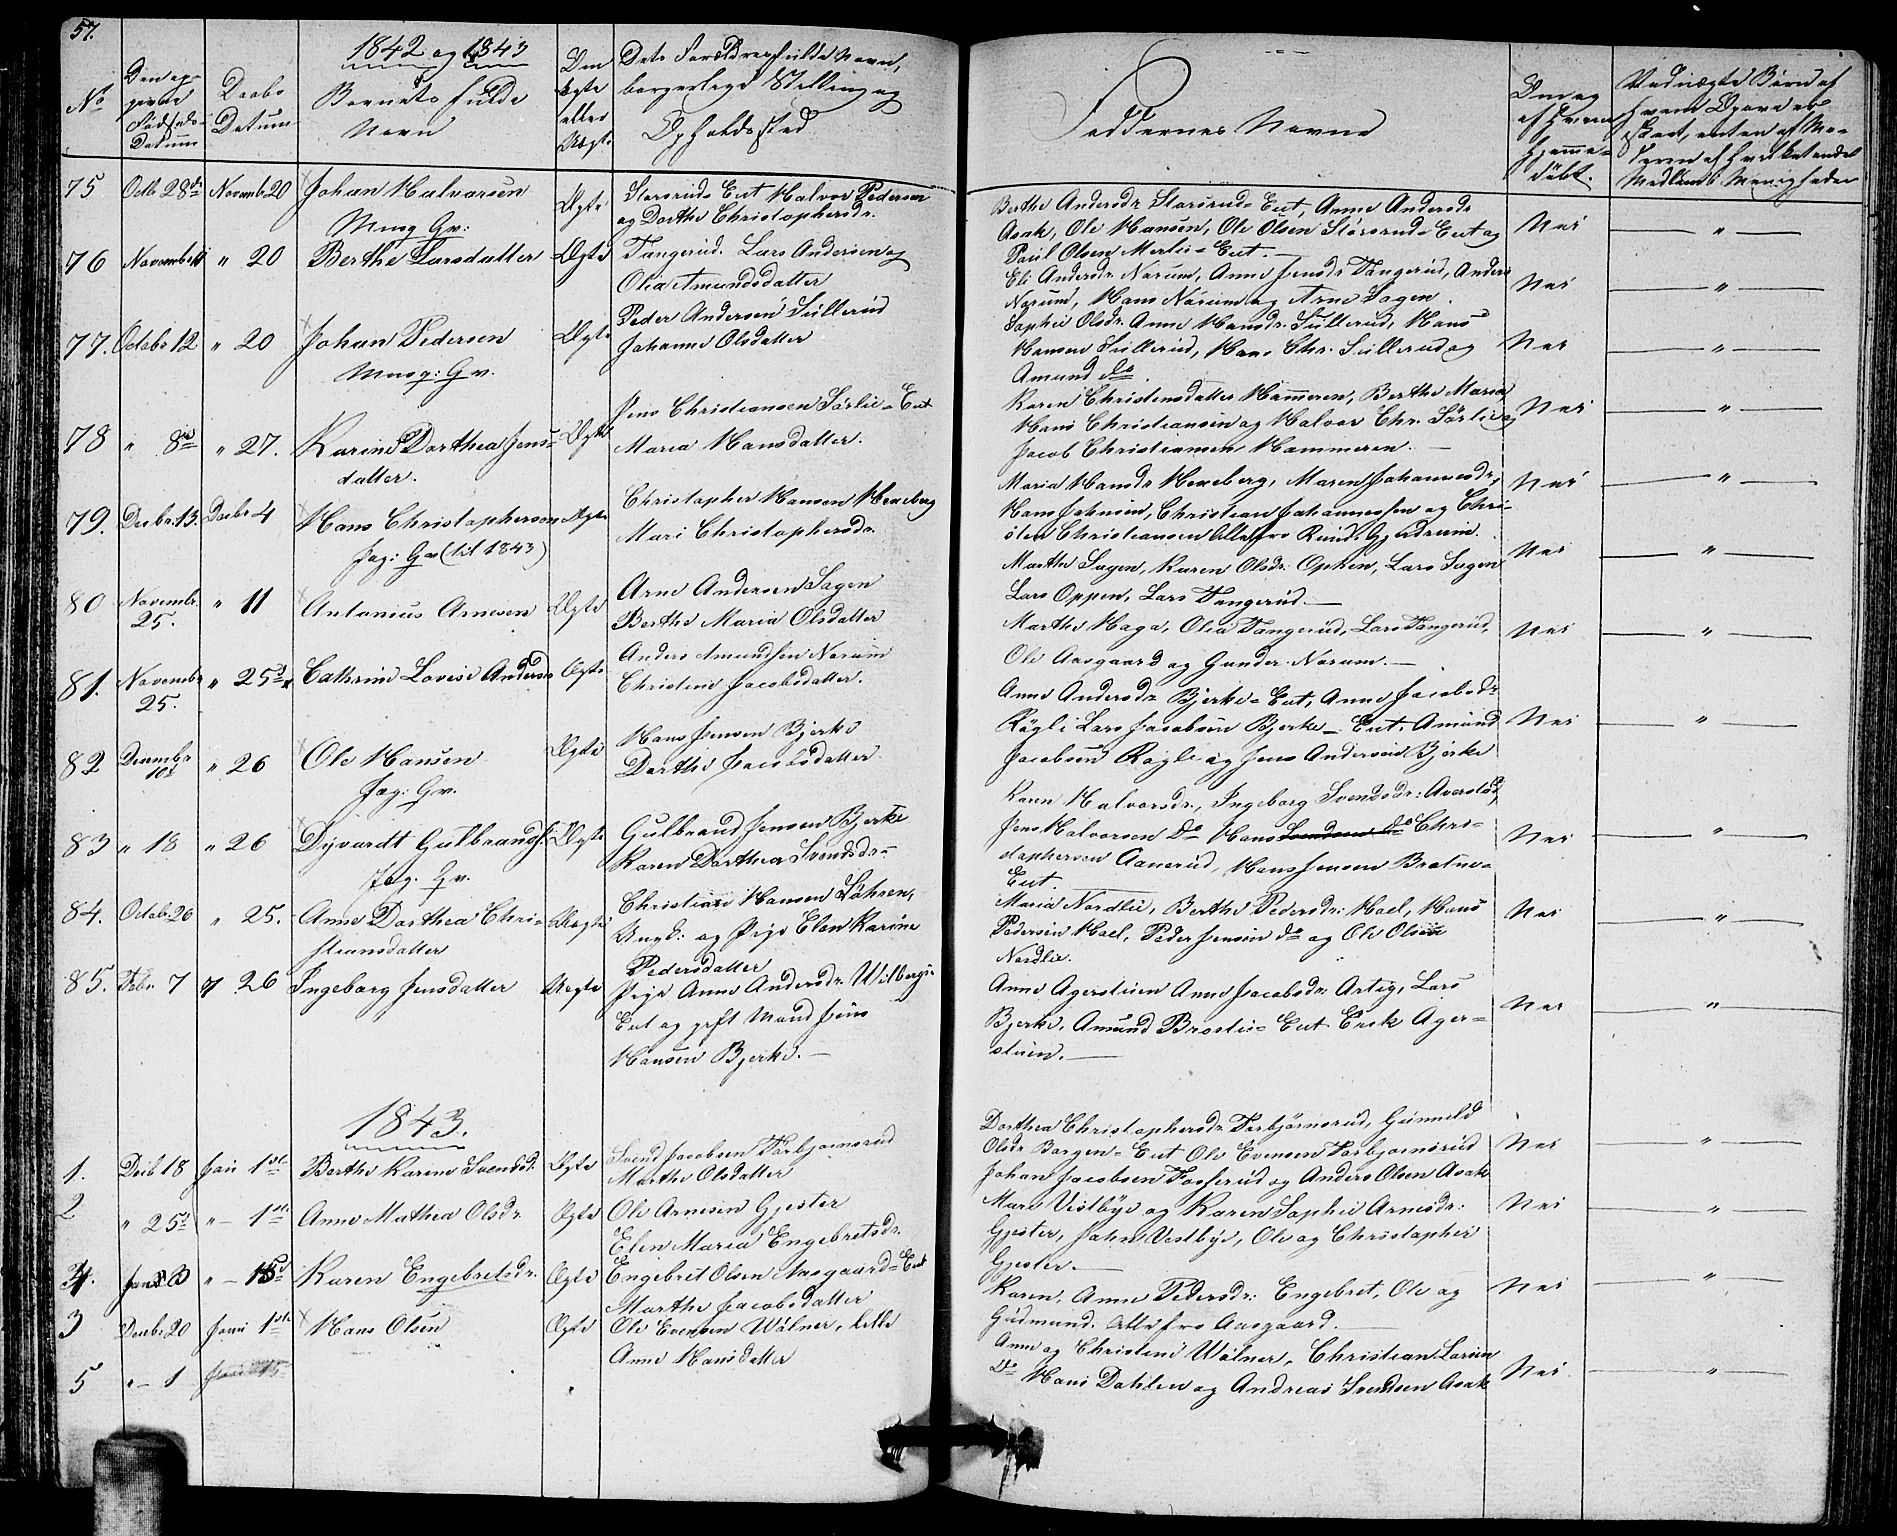 57.
No
Den op-
givne
Fødsels-
Datum
Daabs
Datum
1842 og 1843
Barnets fulde
Navn
Om
Ægte
eller
Uægte
Dets Forældres fulde Navn,
borgerlige Stilling og
Opholdssted
Faddernes Navne
Om og
af Hvem
hjemme-
døbt.
Ved uægte Børn af
75 Octb 28de Novemb. 20 Johan Halvorsen Ægte Storsrud-Eiet Halvor Pedersen
Musg Gv: og Dorthe Christophersdr.
Berthe Andersdr Storsrud-Eiet, Anne Andersdr
Asak, Ole Hansen, Ole Olsen Storsrud-Eiet og
Paul Olsen Merlie-Eiet.— Nei — " —
76 Novemb 11 " 20 Berthe Larsdatter Ægte Tangerud. Lars Andersen og
Olea Amundsdatter
Eli Andersdr Norum, Anne Jensdr Tangerud, Anders
Norum, Hans Norum og Arne Sagen. Nei — " —
77. Octobr 12 " 20 Johan Pedersen Ægte Peder Andersen Sullerud
Musg: Gv. Johanne Olsdatter
Sophie Olsdr. Anne Hansdr. Sullerud, Hans
Hansen Sullerud, Hans Chr. Sullerud og
Amund do Nei — " —
78 " 8de " 27. Karine Dorthea Jens- Ægte Jens Christiansen Sørlie-Eiet
datter. Maria Hansdatter.
Karen Christensdatter Hammeren, Berthe Maria,
Hans Christiansen og Halvor Chr. Sørlie og
Jacob Christiansen Hammeren.— Nei — " —
79. Decbr. 13. Decbr 4 Hans Christophersen Ægte Christopher Hansen Heneberg
Jag: Gv (til 1843) Mari Christophersdr.
Maria Hansdr Heneberg, Maren Johannesdr,
Hans Johnsen, Christian Johannessen og Chri-
sten Christiansen Alle fra Ruud. Gjerdrum. Nei — " —
80 Novembr. 25. " 11 Antonius Arnesen Ægte Arne Andersen Sagen
Berthe Maria Olsdatter
Marthe Sagen, Karen Olsdr. Opken, Lars Sagen
Lars Oppen, Lars Tangerud.— Nei — " —
81. Novembr 25. " 25de Cathrine Lovise Andersdr Ægte Anders Amundsen Norum
Christine Jacobsdatter.
Marthe Haga, Olea Tangerud, Lars Tangerud,
Ole Aasgaard og Gunder Norum.— Nei — " —
82 Decembr 10de " 26 Ole Hansen Ægte Hans Jensen Bjerke
Jag: Gv. Dorthe Jacobsdatter
Anne Andersdr Bjerke-Eiet, Anne Jacobsdr
Røgli Lars Jacobsen Bjerke-Eiet, Amund
Jacobsen Røgli og Jens Andersen Bjerke Nei — " —
83 " 18 " 26 Dyvardt Gulbrands. Ægte Gulbrand Jensen Bjerke
Jag. Gv. Karen Dorthea Svendsdr-
Karen Halvorsdr., Ingeborg Svendsdr: Averstad,
Jens Halvorsen Do Hans Svendsen do Chri-
stophersen Aanerud, Hans Jensen Bratne-
Eiet. Nei — " —
84. Octobr. 26 " 25. Anne Dorthea Chri- Uægte Christian Hansen Løhren,
stiansdatter Ungk: og Pige Elen Karine
Pedersdatter
Maria Nordlie, Berthe Pedersdr: Hoel, Hans
Pedersen Hoel, Peder Jensen do og Ole Olsen
Nordlie. Nei — " —
85. Decbr. 7 " 26 Ingeborg Jensdatter Uægte Pige Anne Andersdr. Wilbergs-
Eiet og gift Mand Jens
Hansen Bjerke.—
Anne Agerstuen Anne Jacobsdr: Artig, Lars
Bjerke, Amund Brostue-Eiet Erik Ager-
stuen.— Nei — " —
1843.
1. Decb 18 Jan 1ste Berthe Karine Svendsd. Ægte Svend Jacobsen Torbjørnsrud
Marthe Olsdatter
Dorthea Christophersdr Torbjørnsrud, Gunnild
Olsdr Borgen-Eiet Ole Evensen Torbjørnsrud
Johan Jacobsen Fosserud og Anders Olsen Asak Nei — " —
2 " 25de " — 1ste Anne Mathea Olsdr. Ægte Ole Arnesen Gjester
Elen Maria Engebretsdr.
Mari Vestbye og Karen Sophie Arnesdr:
Gjester, John Vestbye, Ole og Christopher
Gjester.— Nei — " —
4. Jan " — 15de Karen Engebretsdr. Ægte Engebret Olsen Aasgaard-Eiet
Marthe Jacobsdatter
Karen, Anne Pedersdr: Engebret, Ole og
Gudmund. Alle fra Aasgaard.— Nei — " —
3 Decbr 20 Jan 1ste Hans Olsen Ægte Ole Evensen Wølner, lille
Anne Hansdatter
Anne og Christine Wølner, Christian Larsen
Do Hans Dahlen og Andreas Svendsen Asak Nei — " —
5 " — 1 Jan 15